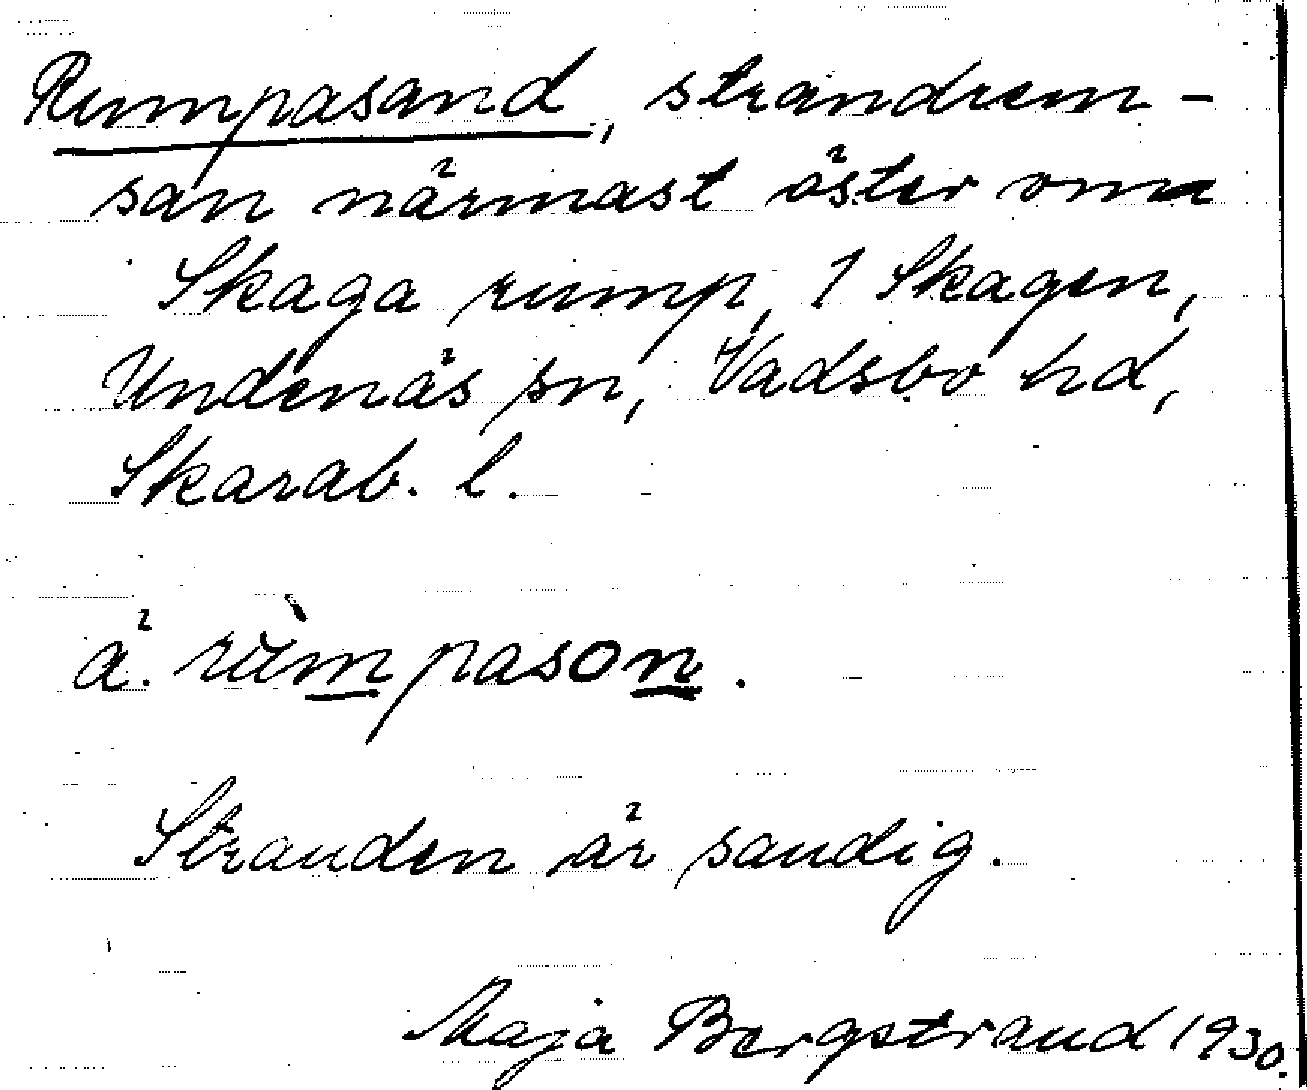 Rumpasand, strandrem-
san närmast öster om
Skaga rump, 1 Skagen,
Undenäs sn, Vadsbo hd,
Skarab. l.
å. rùmpason.
Stranden är sandig.
Maja Bergstrand 1930.